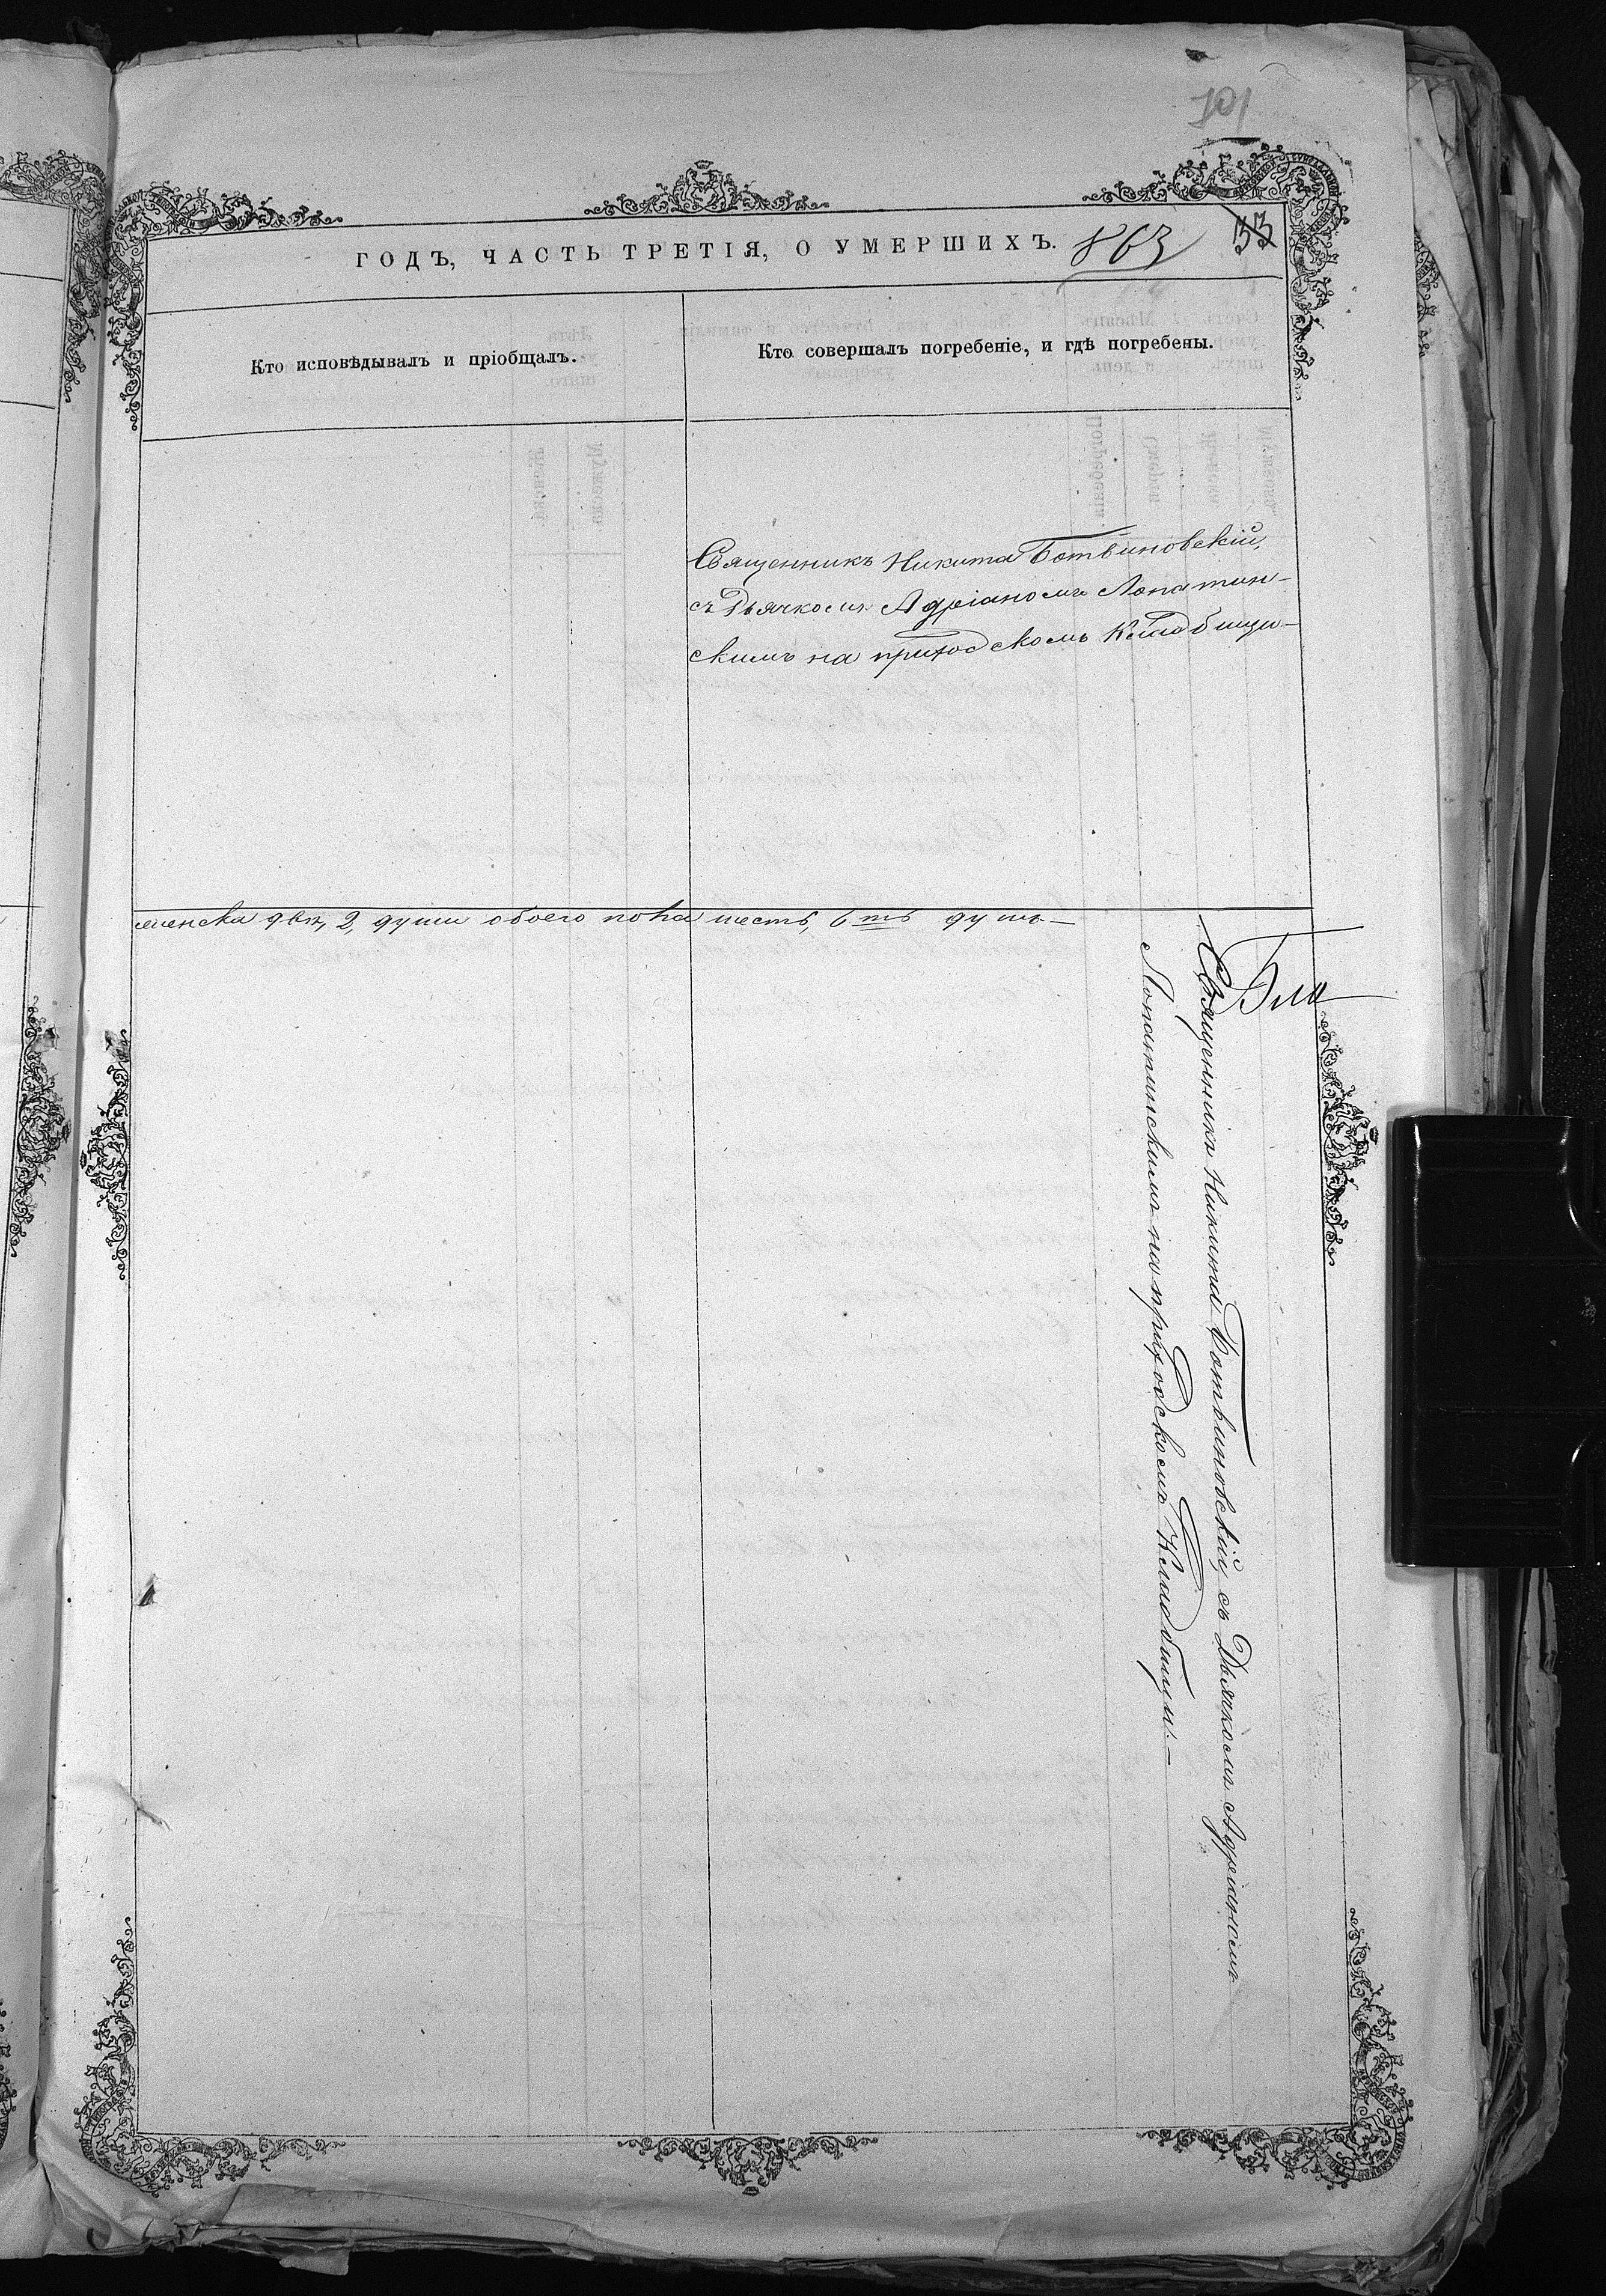 101
ГОДЪ, ЧАСТЬ ТРЕТІЯ, О УМЕРШИХЪ. 863
33
Кто исповѣдывалъ и пріобщалъ.
Кто совершалъ погребеніе, и гдѣ погребены.
Священникъ Никита Ботвиновскій,
съ Дьячкомъ Адріаномъ Лопатин-
скимъ на приходскомъ Кладбищи-
менска двѣ, 2, души обоего пола шесть, 6ть душъ-
Бла
Священникъ Никита Ботвиновскій, съ Дьячкомъ Адріаномъ
Лопатинскимъ на приходскомъ Кладбищи.-